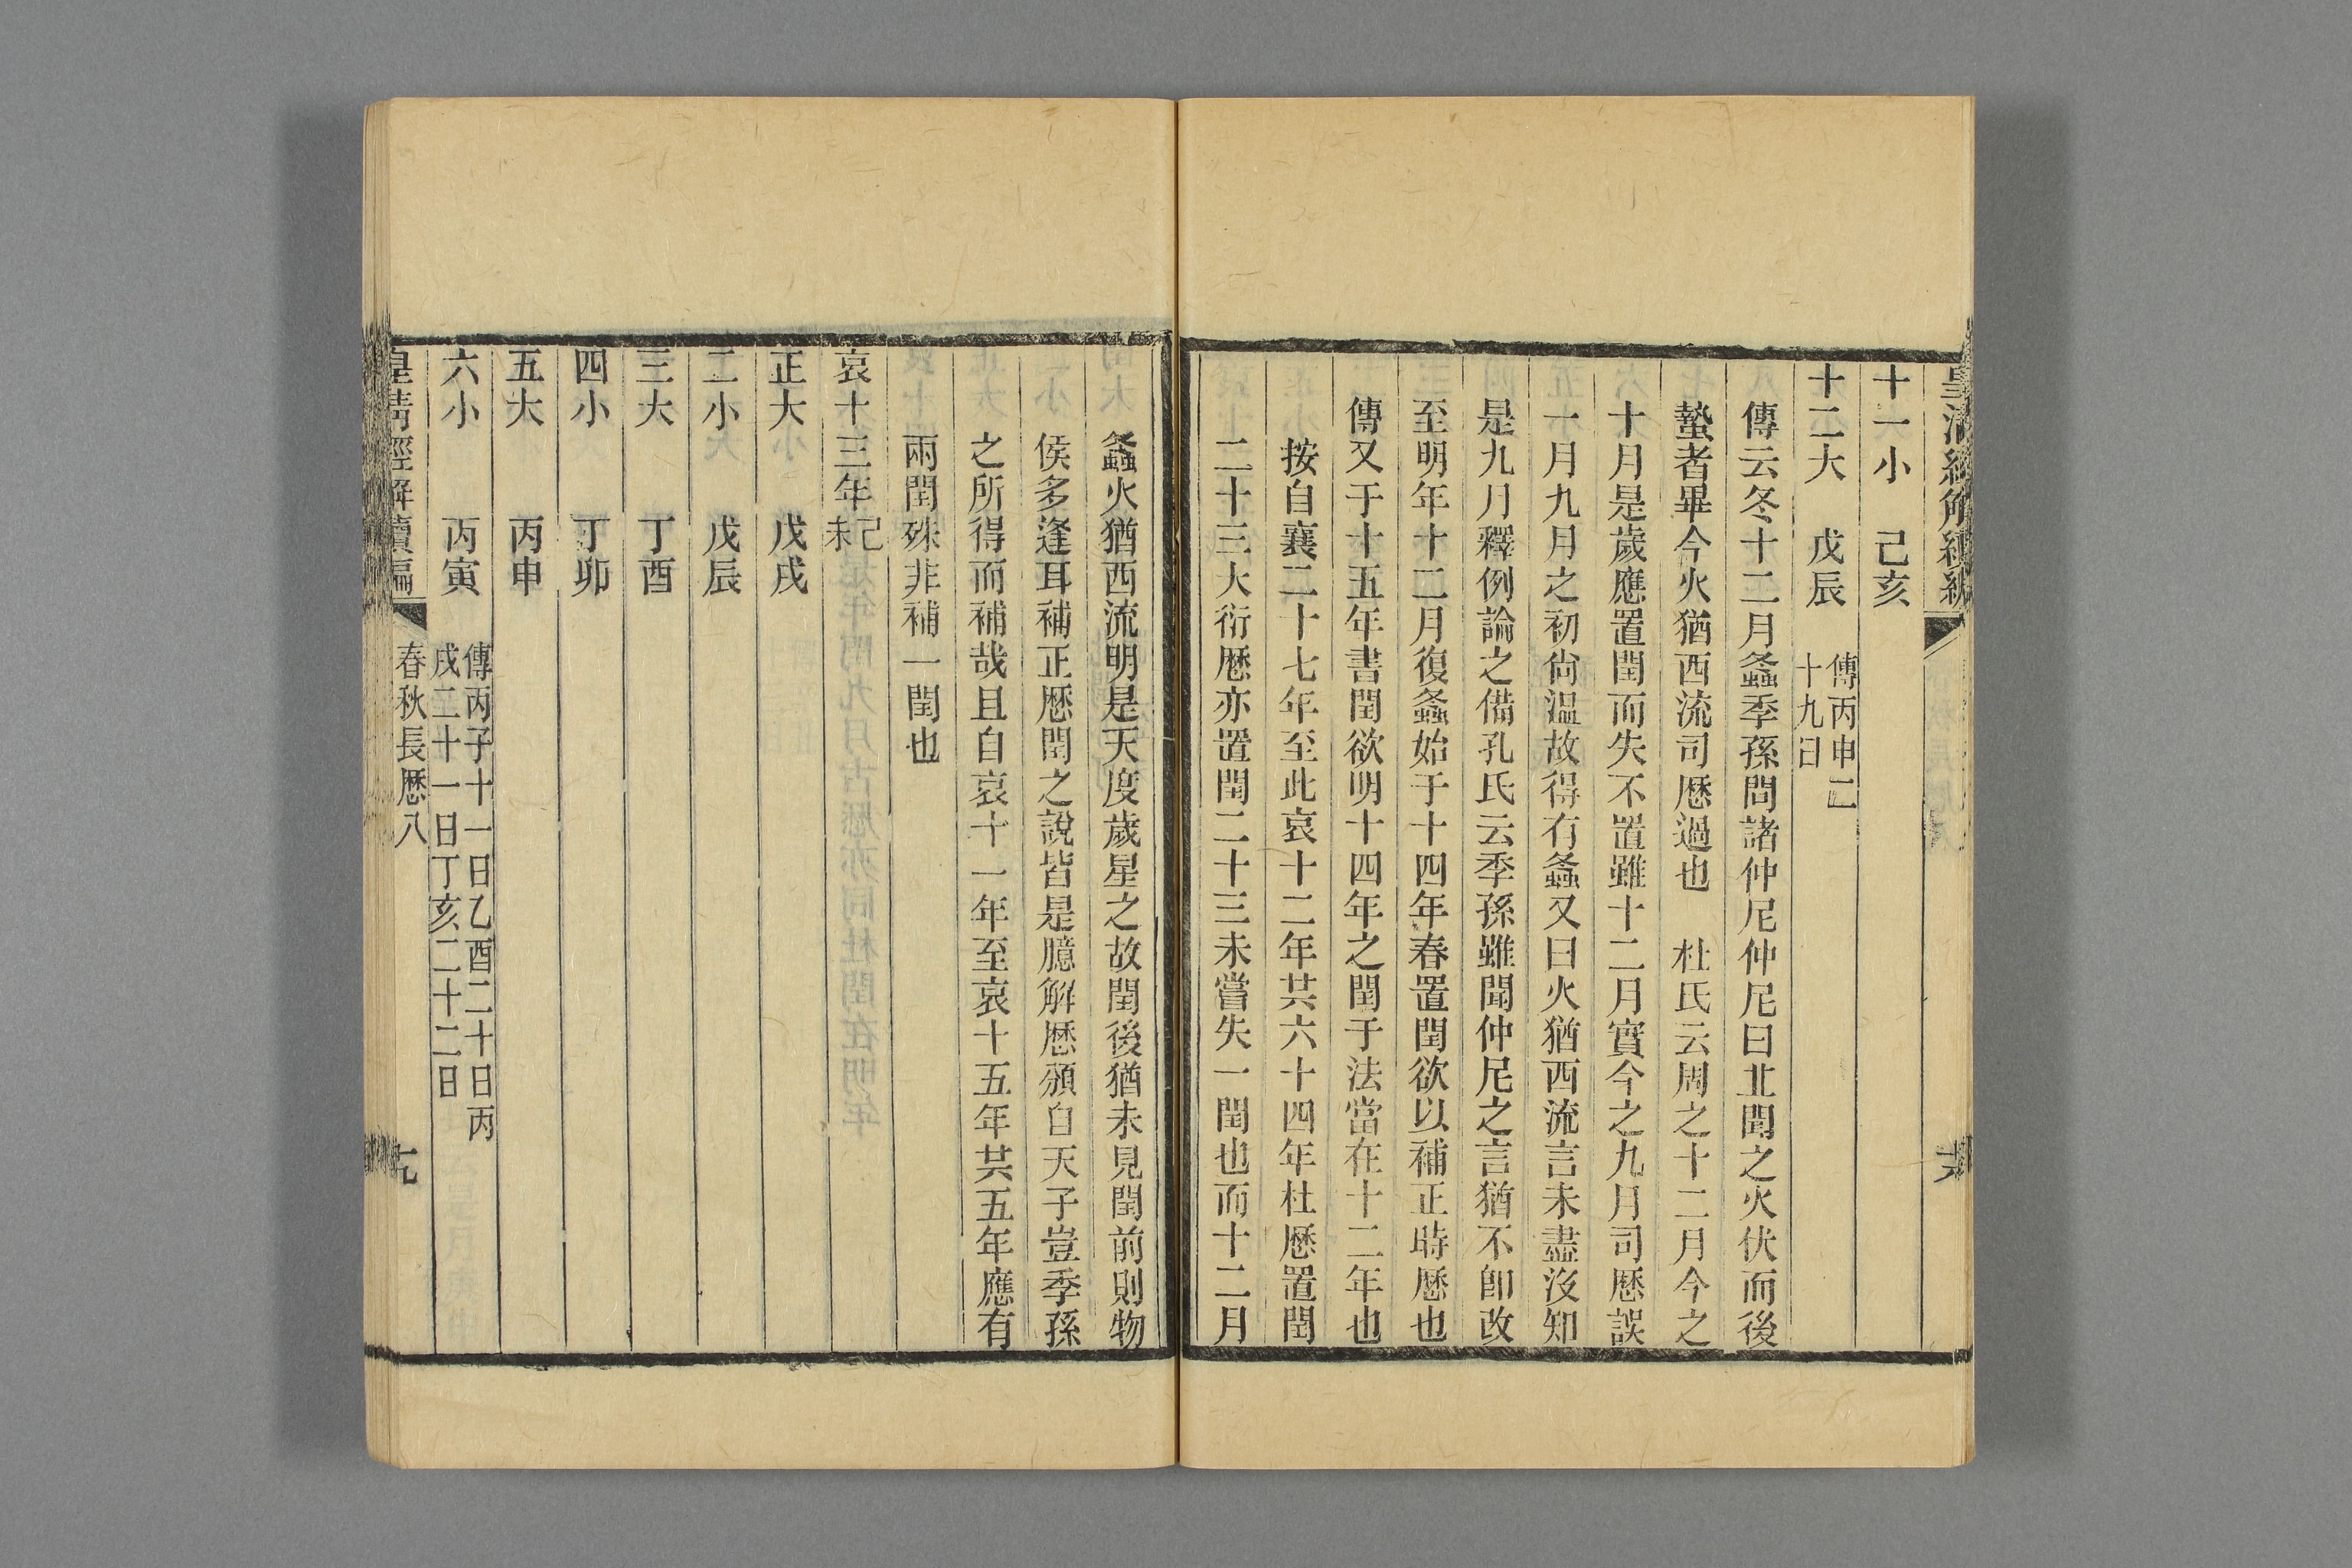 皇清經解續編
十一小　己亥
十二大　戊辰　傳丙申二
十九日
傳云冬十二月螽季孫問諸仲尼仲尼曰北聞之火伏而後
蟄者畢今火猶西流司厯過也　杜氏云周之十二月今之
十月是歲應置閏而失不置雖十二月實今之九月司厯誤
一月九月之初尙溫故得有螽又曰火猶西流言未盡沒知
是九月釋例論之備孔氏云季孫雖聞仲尼之言猶不卽改
至明年十二月復螽始于十四年春置閏欲以補正時厯也
傳又于十五年書閏欲明十四年之閏于法當在十二年也
按自襄二十七年至此哀十二年共六十四年杜厯置閏
二十三大衍厯亦置閏二十三未嘗失一閏也而十二月
螽火猶西流明是天度歲星之故閏後猶未見閏前則物
侯多逢耳補正厯閏之說皆是臆解厯頒自天子豈季孫
之所得而補哉且自哀十一年至哀十五年共五年應有
兩閏殊非補一閏也
哀十三年己未
正大　戊戌
二小　戊辰
三大　丁酉
四小　丁卯
五大　丙申
六小　丙寅　傳丙子十一日乙酉二十日丙
戌二十一日丁亥二十二日
皇清經解續編　春秋長厯八